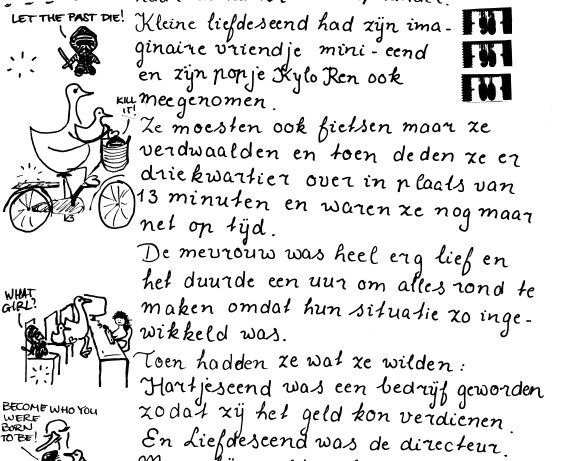 LET THE PAST DIE!
Kleine liefdeseend had zijn ima-
ginaire vriendje mini-eend
en zijn popje Kylo Ren ook
meegenomen.
KILL
IT!
Ze moesten ook fietsen maar ze
verdwaalden en toen deden ze er
driekwartier over in plaats van
13 minuten en waren ze nog maar
net op tijd.
De mevrouw was heel erg lief en
het duurde een uur om alles rond te
maken omdat hun situatie zo inge-
wikkeld was.
WHAT
GIRL?
Toen hadden ze wat ze wilden:
Hartjeseend was een bedrijf geworden
zodat zij het geld kon verdienen.
En Liefdeseend was de directeur.
BECOME WHO YOU
WERE
BORN
TO BE!